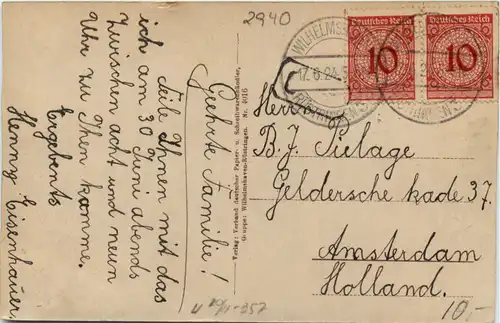 2940
Deutsches Reich
10
Deutsches Reich
10
WILHELMSH
17.6.24.5
RÜSTRINGEN
Geehrte Familie!
Teile Ihnen mit das
ich am 30 Juni abends
zwischen acht und neun
Uhr zu Ihen komme.
Ergebents
Henny Eisenhauer
Verlag: Verband deutscher Papier- u. Schreibwarenhändler,
Gruppe: Wilhelmshaven-Rüstringen. Nr. 4016
Herrn
B. J. Pielage
Geldersche kade 37.
Amsterdam
Holland.
10,-